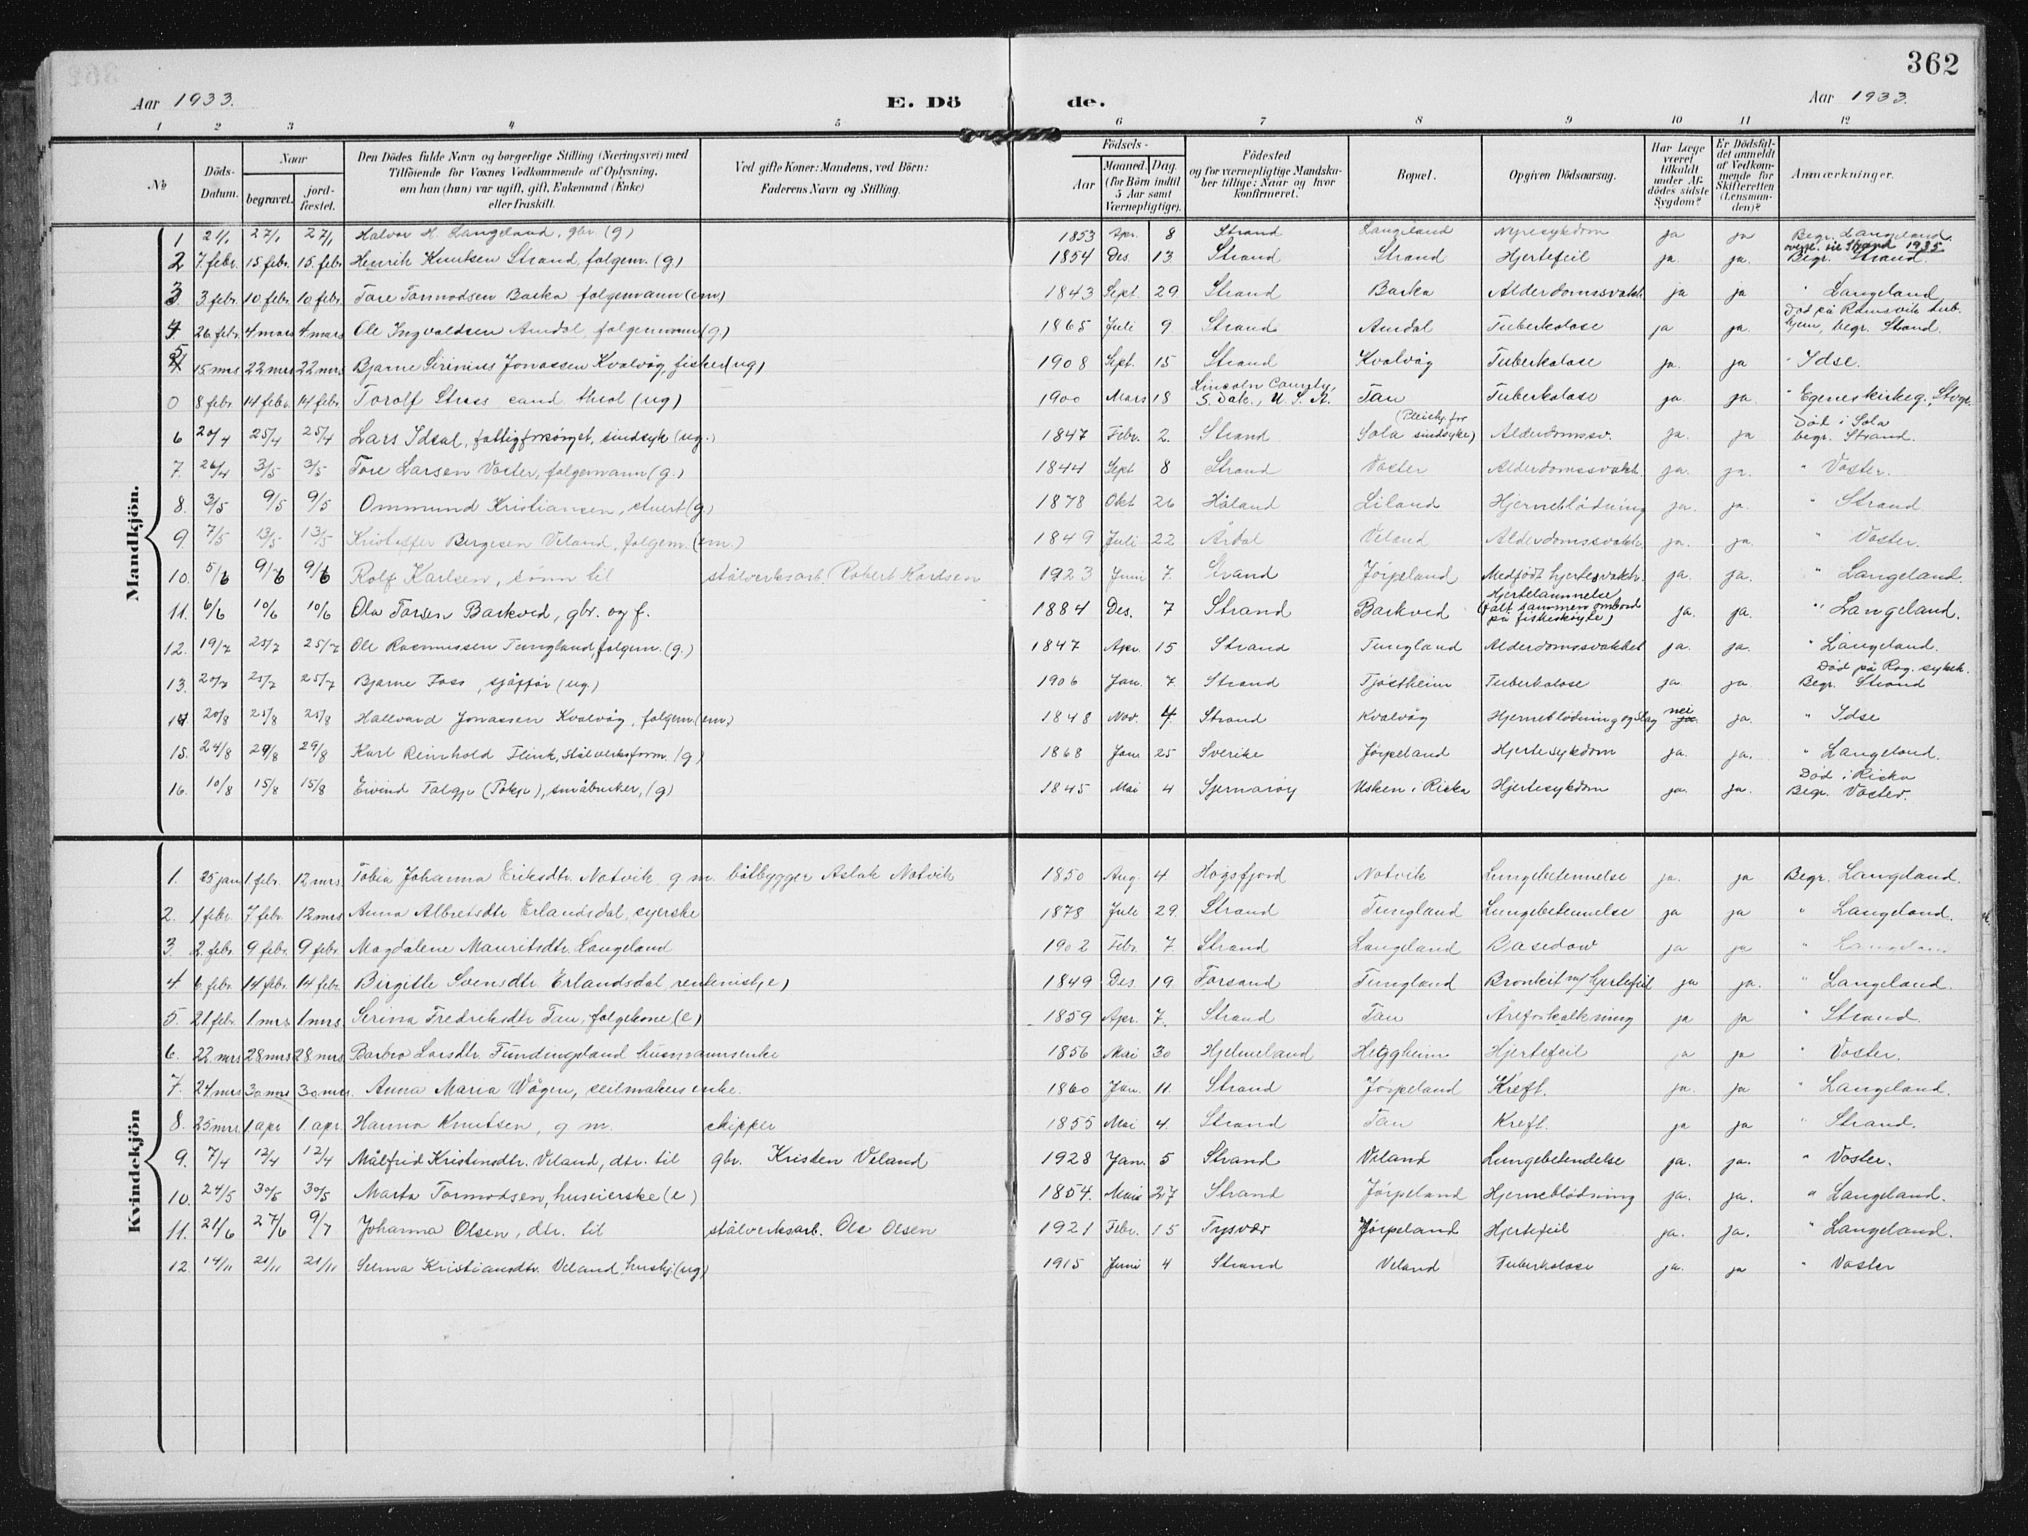 362
Aar 1933. E. Dö de. Aar 1933.
1 2 3 4 5 6 7 8 9 10 11 12
No
Döds-Datum.
Naar
begravet.
jord-fæstet.
Den Dödes fulde Navn og borgerlige Stilling (Næringsvei) med
Tilföiende for Voxnes Vedkommende af Oplysning,
om han (hun) var ugift, gift, Enkemand (Enke)
eller fraskilt.
Ved gifte Koner: Mandens, ved Börn:
Faderens Navn og Stilling.
Födsels-
Aar
Maaned. Dag
(for Börn indtil
5 Aar samt
Værnepligtige).
Födested
og for værnepligtige Mandska-
ber tillige: Naar og hvor
konfirmeret.
Bopæl.
Opgiven Dödsaarsag.
Har Læge
været
tilkaldt
under Af-
dödes sidste
Sygdom?
Er Dödsfal-
det anmeldt
af Vedkom-
mende for
Skifteretten
(Lensman-
den)?
Anmærkninger.
Mandkjön.
1 21/1 27/1 27/1 Halvor H. Langeland, gbr. (g) 1853 Apr. 8 Strand Langeland Nyresykdom ja ja Begr. Langeland
overf. til Strand 1935
2 7 febr. 15 febr. 15 febr Henrik Knutsen Strand, folgem. (g) 1854 Des. 13 Strand Strand Hjertefeil ja. ja. Begr. Strand.
3 3 febr. 10 febr. 10 febr. Tore Tormodsen Barka folgemann (em) 1843 Sept. 29 Strand Barka Alderdomssvakh. ja ja " Langeland
4 26 febr. 4 mars 4 mars Ole Ingvaldsen Amdal, folgemann (g) 1865 Juli 9 Strand Amdal Tuberkolose ja ja. Död på Ramsvik tub.
hjem, begr. Strand.
5 15 mrs 22 mrs 22 mrs Bjarne Sirinius Jonassen Kvalvåg, fisker (ug) 1908 Sept. 15 Strand Kvalvåg Tuberkolose ja. ja " Idse.
0 8 febr. 14 febr. 14 febr. Torolf Strøss cand. theol (ug) 1900 Mars 18 Lincoln County,
S. Dak., U. S. A. Tau Tuberkolose ja. ja " Egeneskirkeg., Stvgr.
6 20/4 25/4 25/4 Lars Idsal, fattigforsørget, sindsyk (ug.) 1847 Febr. 2. Strand Sola (Pleiehj. for
sindsyke) Alderdomssv. ja. ja Död i Sola
begr. Strand.
7. 26/4 3/5 3/5 Tore Larsen Voster, folgemann (g.) 1844 Sept 8 Strand Voster Alderdomssvakh. ja. ja. " Voster.
8. 3/5 9/5 9/5 Ommund Kristiansen, stuert (g) 1878 Okt 26 Håland Liland Hjerneblödning ja. ja. " Strand
9. 7/5 13/5 13/5 Kristoffer Bergesen Veland, folgem. (em.) 1849 Juli 22 Årdal Veland Alderdomssvakh. ja. ja " Voster.
10. 5/6 9/6 9/6 Rolf Karlsen, sönn til stålverksarb. Robert Karlsen 1923 Juni 7. Strand Jörpeland Medfödt hjertesvakh. ja. ja. " Langeland.
11. 6/6 10/6 10/6 Ola Torsen Barkved, gbr. og f. 1884 Des. 7 Strand Barkved Hjertelammelse
(falt sammen ombord
på fiskeskøyte) ja. ja. " Langeland.
12. 19/7 25/7 25/7 Ole Rasmussen Tungland, folgem. (g.) 1847 Apr. 15 Strand Tungland Alderdomssvakhet ja. ja. " Langeland.
13. 20/7 25/7 25/7 Bjarne Foss, sjåffør (ug.) 1906 Jan. 7 Strand Tjöstheim Tuberkolose ja. ja. Död på Rog. sykeh.
Begr. Strand
14 20/8 25/8 25/8 Hallvard Jonassen Kvalvåg, folgem. (em.) 1848 Nov. 4 Strand Kvalvåg Hjerneblödning og slag nei ja. ja. " Idse
15. 24/8 29/8 29/8 Karl Reinhold Flink, Stålverksform. (g) 1868 Jan. 25 Sverike Jörpeland Hjertesykdom ja. ja. " Langeland.
16. 10/8 15/8 15/8 Eivind Talgje (Tökje), småbruker, (g) 1845 Mai 4 Sjernaröy Usken i Riska Hjertesykdom ja. ja. Död i Riska
Begr. Voster.
Kvindekjön
1. 25 jan 1 febr. 12 mrs. Tobia Johanna Eriksdtr. Notvik, g m. båtbygger Aslak Notvik 1850 Aug. 4 Högsfjord Notvik Lungebetennelse ja. ja Begr. Langeland.
2. 1 febr. 7 febr. 12 mrs Anna Albretsdtr Erlandsdal, syerske 1878 Juli 29. Strand Tungland Lungebetennelse ja ja " Langeland.
3. 2 febr. 9 febr. 9 febr. Magdalene Mauritsdtr. Langeland 1902 Febr. 7 Strand Langeland Basedow ja ja " Langeland
4 6 febr. 14 febr. 14 febr. Birgitte Svensdtr Erlandsdal rentenist, e) 1849 Des. 19 Forsand Tungland Bronkit m/ hjertefeil ja ja. " Langeland.
5. 21 febr. 1 mrs. 1 mrs. Serina Fredriksdtr Tau, folgekone (e) 1859 Apr. 7. Strand Tau Åreforkalkning ja ja " Strand.
6. 22 mrs 28 mrs 28 mrs. Barbro Larsdtr. Fundingsland husmannsenke 1856 Mai 30 Hjelmeland Heggheim Hjertefeil ja ja " Voster.
7. 24 mrs 30 mrs 30 mrs. Anna Maria Vågen, seilmakersenke. 1860 Jan. 11. Strand Jörpeland Kreft. ja. ja " Langeland.
8. 25 mrs. 1 apr 1. apr. Hanna Knutsen, g m. skipper 1855 Mai 4. Strand Tau Kreft. ja ja " Strand.
9. 7/4 12/4 12/4 Målfrid Kristensdtr. Veland, dtr. til gbr. Kristen Veland 1928 Jan. 5 Strand Veland Lungebetendelse ja. ja. " Voster.
10. 24/5 30/5 30/5 Marta Tormodsen, huseierske (e) 1854. Mai 27 Strand Jörpeland Hjerneblödning ja. ja. " Langeland.
11. 21/6 27/6 9/7 Johanna Olsen, dtr. til stålverksarb. Ole Olsen 1921 Febr. 15 Tysvær Jörpeland Hjertefeil ja. ja. " Langeland.
12. 14/11 21/11 21/11 Selma Kristiansdtr. Veland, hushj (ug) 1915 Juni 4 Strand Veland Tuberkolose ja. ja " Voster